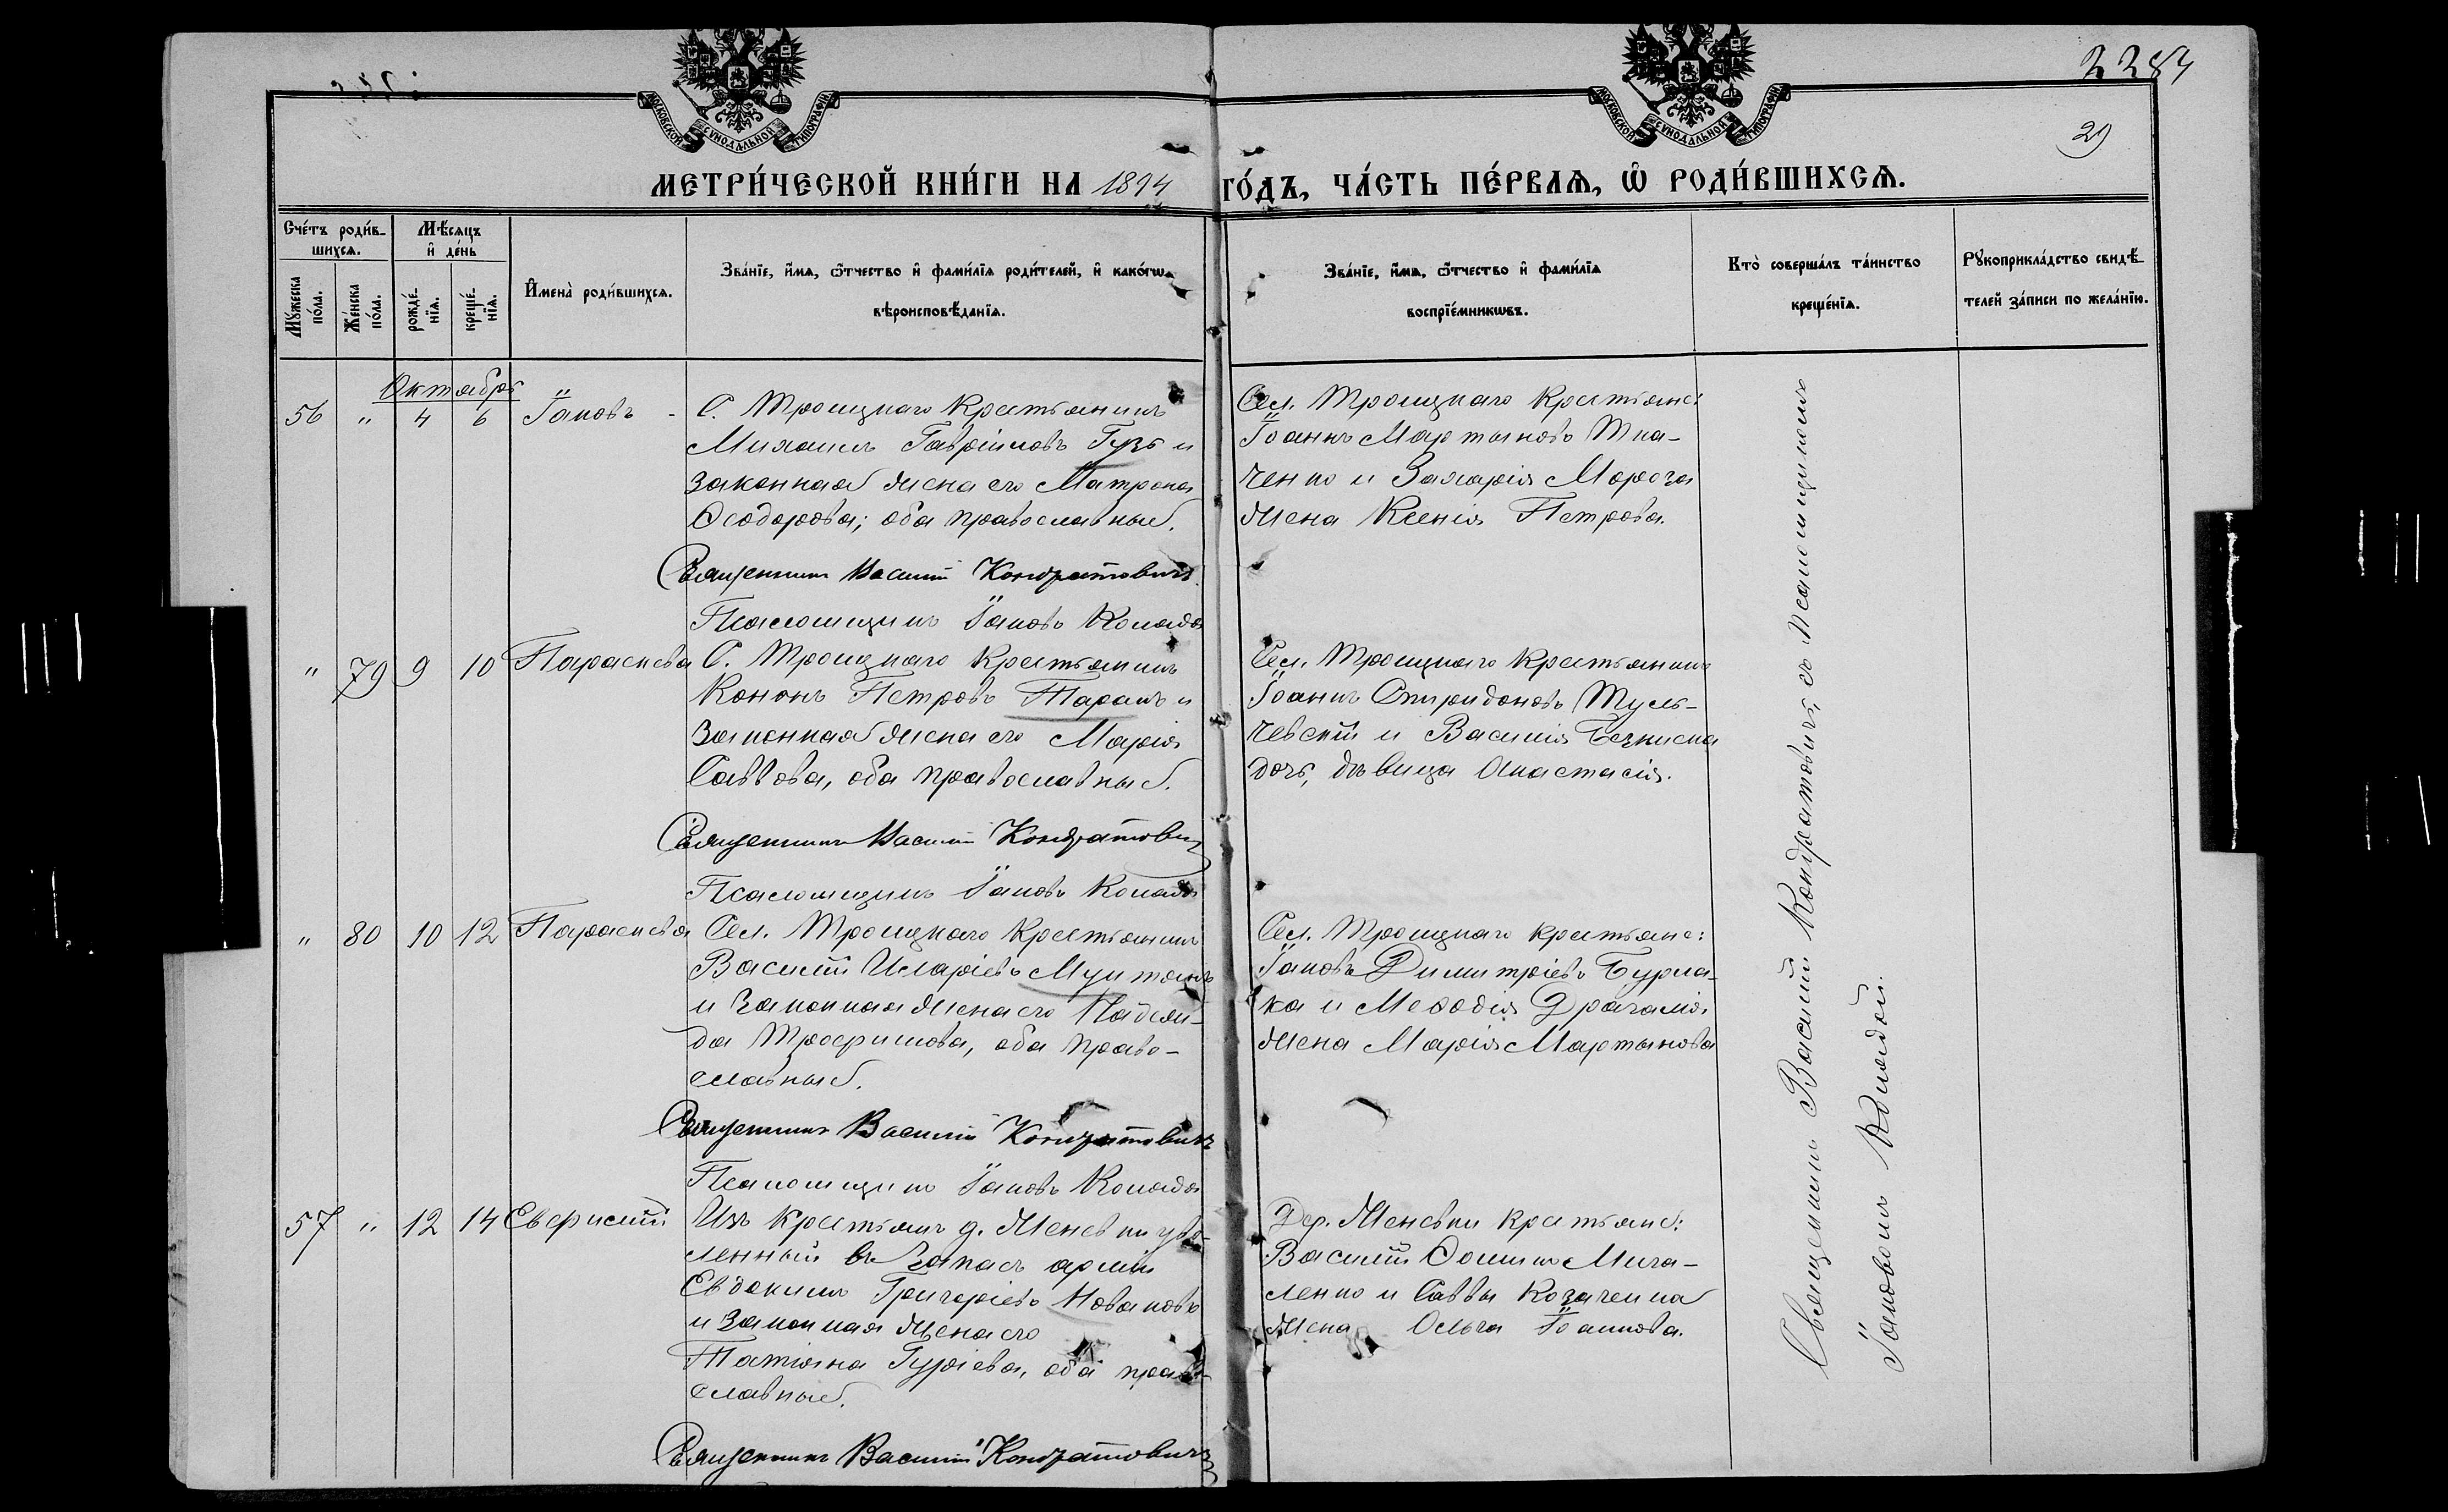 2284
29
МОСКОВСКОЙ СѴНОДАЛЬНОЙ ТИПОГРАФІИ
МОСКОВСКОЙ СѴНОДАЛЬНОЙ ТИПОГРАФІИ
МЕТРИ́ЧЕСКОЙ КНИ́ГИ НА 1894 ГО́ДЪ, ЧА́СТЬ ПЕ́РВАѦ, Ѡ҆ РОДИ́ВШИХСѦ.
Сче́тъ роди́в-
шихсѧ.
Мꙋ́жеска по́ла.
Же́нска по́ла.
Мѣ́сѧцъ
и҆ де́нь
рожде́-
нїѧ.
креще́-
нїѧ.
И҆мена̀ роди́вшихсѧ.
Зва́нїе, и҆́мѧ, ѻ҆́тчество и҆ фами́лїѧ роди́телей, и҆ како́гѡ
вѣроисповѣ́данїѧ.
Зва́нїе, и҆́мѧ, ѻ҆́тчество и҆ фами́лїѧ
воспрїе́мникѡвъ.
Кто̀ соверша́лъ та́инство
креще́нїѧ.
Рꙋкоприкла́дство свидѣ́-
телей за́писи по жела́нїю.
Октябрь
56 " 4 6 Іаковъ
С. Троицкаго крестьянинъ
Михаилъ Гавріиловъ Гузь и
законная жена его Матрона
Ѳеодорова; оба православные.
Священникъ Василій Кондратовичъ
Псаломщикъ Іаковъ Колада
Сел. Троицкаго крестьяне:
Іоаннъ Мартыновъ Тка-
ченко и Захарія Мороза
жена Ксенія Петрова.
" 79 9 10 Параскева
С. Троицкаго крестьянинъ
Кононъ Петровъ Таранъ и
законная жена его Марія
Саввова, оба православные.
Священникъ Василій Кондратовичъ
Псаломщикъ Іаковъ Колада
Сел. Троицкаго крестьянинъ
Іоаннъ Спиридоновъ Туль-
чевскій и Василія
дочь, дѣвица Анастасія.
" 80 10 12 Параскева
Сел. Троицкаго крестьянинъ
Василій Иларіевъ Мунтянъ
и законная жена его Надеж-
да Трофимова, оба право-
славные.
Священникъ Василій Кондратовичъ
Псаломщикъ Іаковъ Колада
Сел. Троицкаго крестьяне:
Іаковъ Димитріевъ Бурла-
ка и Меѳодія Драгалія
жена Марія Мартынова
57 " 12 14 Евфимій
Изъ крестьянъ д. Женевки уво-
ленный въ запасъ арміи
Евдокимъ Григоріевъ Новаковъ
и законная жена его
Татіяна Гуріева, оба право-
славные.
Священникъ Василій Кондратовичъ
Дер. Женевки крестьяне:
Василій Ѳоминъ Миха-
ленко и Саввы Козаченка
жена Ольга Іоаннова.
Священникъ Василій Кондратовичъ, съ псаломщикомъ
Іаковомъ Коладой.